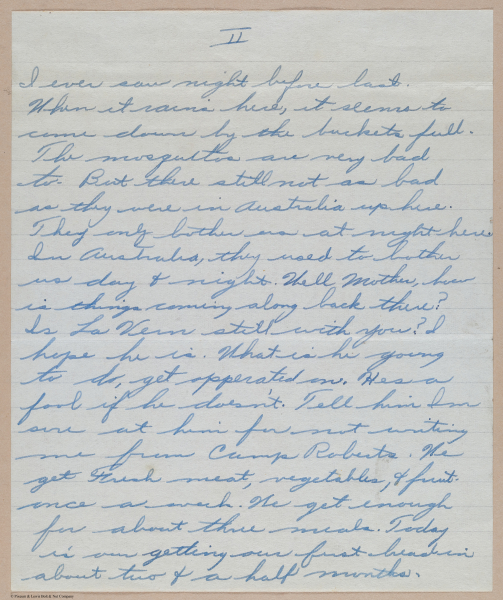 II
I ever saw night before last.
When it rains here, it seems to
come down by the buckets full.
The mosquitos are very bad
to. But there still not as bad
as they were in Australia up here.
They only bother us at night here
In Australia, they used to bother
us day & night. Well, Mother, how
is things coming along back there?
Is La Vern still with you? I
hope he is. What is he going
to do, get opperated on. Hes a
fool if he doesn't. Tell him Im
sore at him for not writing
me from Camp Roberts. We
get Fresh meat, vegetables, & fruit
once a week. We get enough
for about three meals. Today
is our getting our first bread in
about two & a half months.